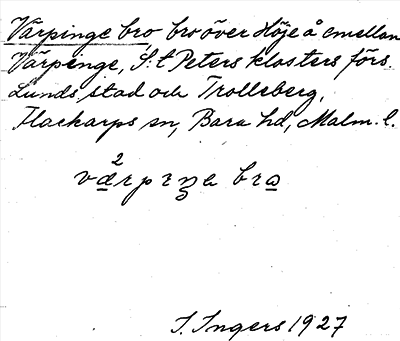 Värpinge bro, bro över Höje å emellan
Värpinge, S:t Peters klosters förs.
Lunds stad och Trolleberg,
Flackarps sn, Bara hd, Malm. l.
2
værpɪŋa bro
I. Ingers 1927